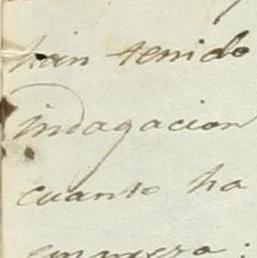 han tenido
indagacion
cuanto ha